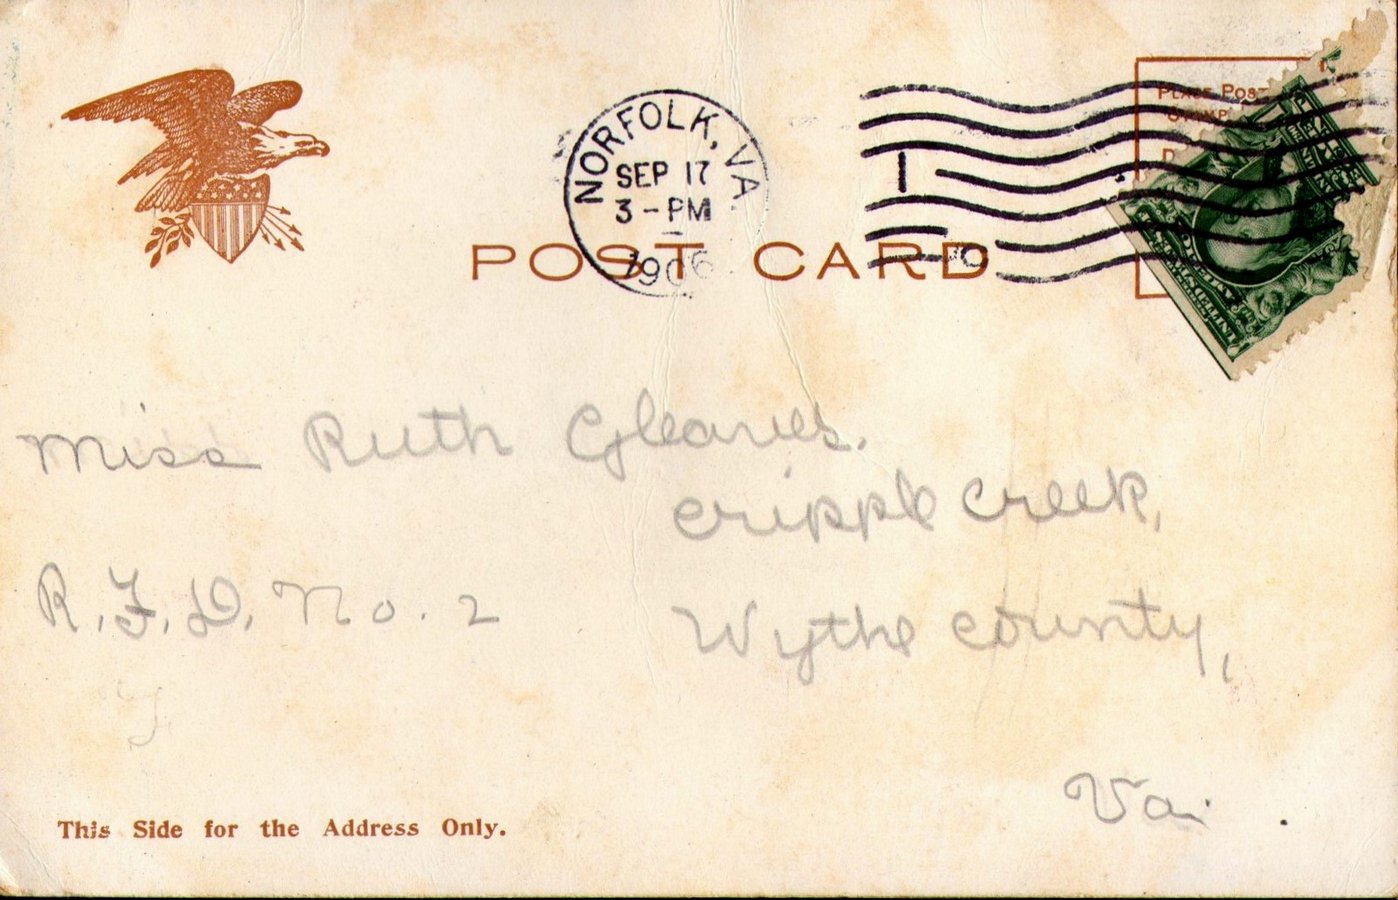 NORFOLK, VA.
SEP 17
3 - PM
1906
1
PLACE POST
STAMP
POST CARD
Miss Ruth Gleaves.
Cripple Creek,
R.F.D. No. 2
Wythe County,
Va.
This Side for the Address Only.